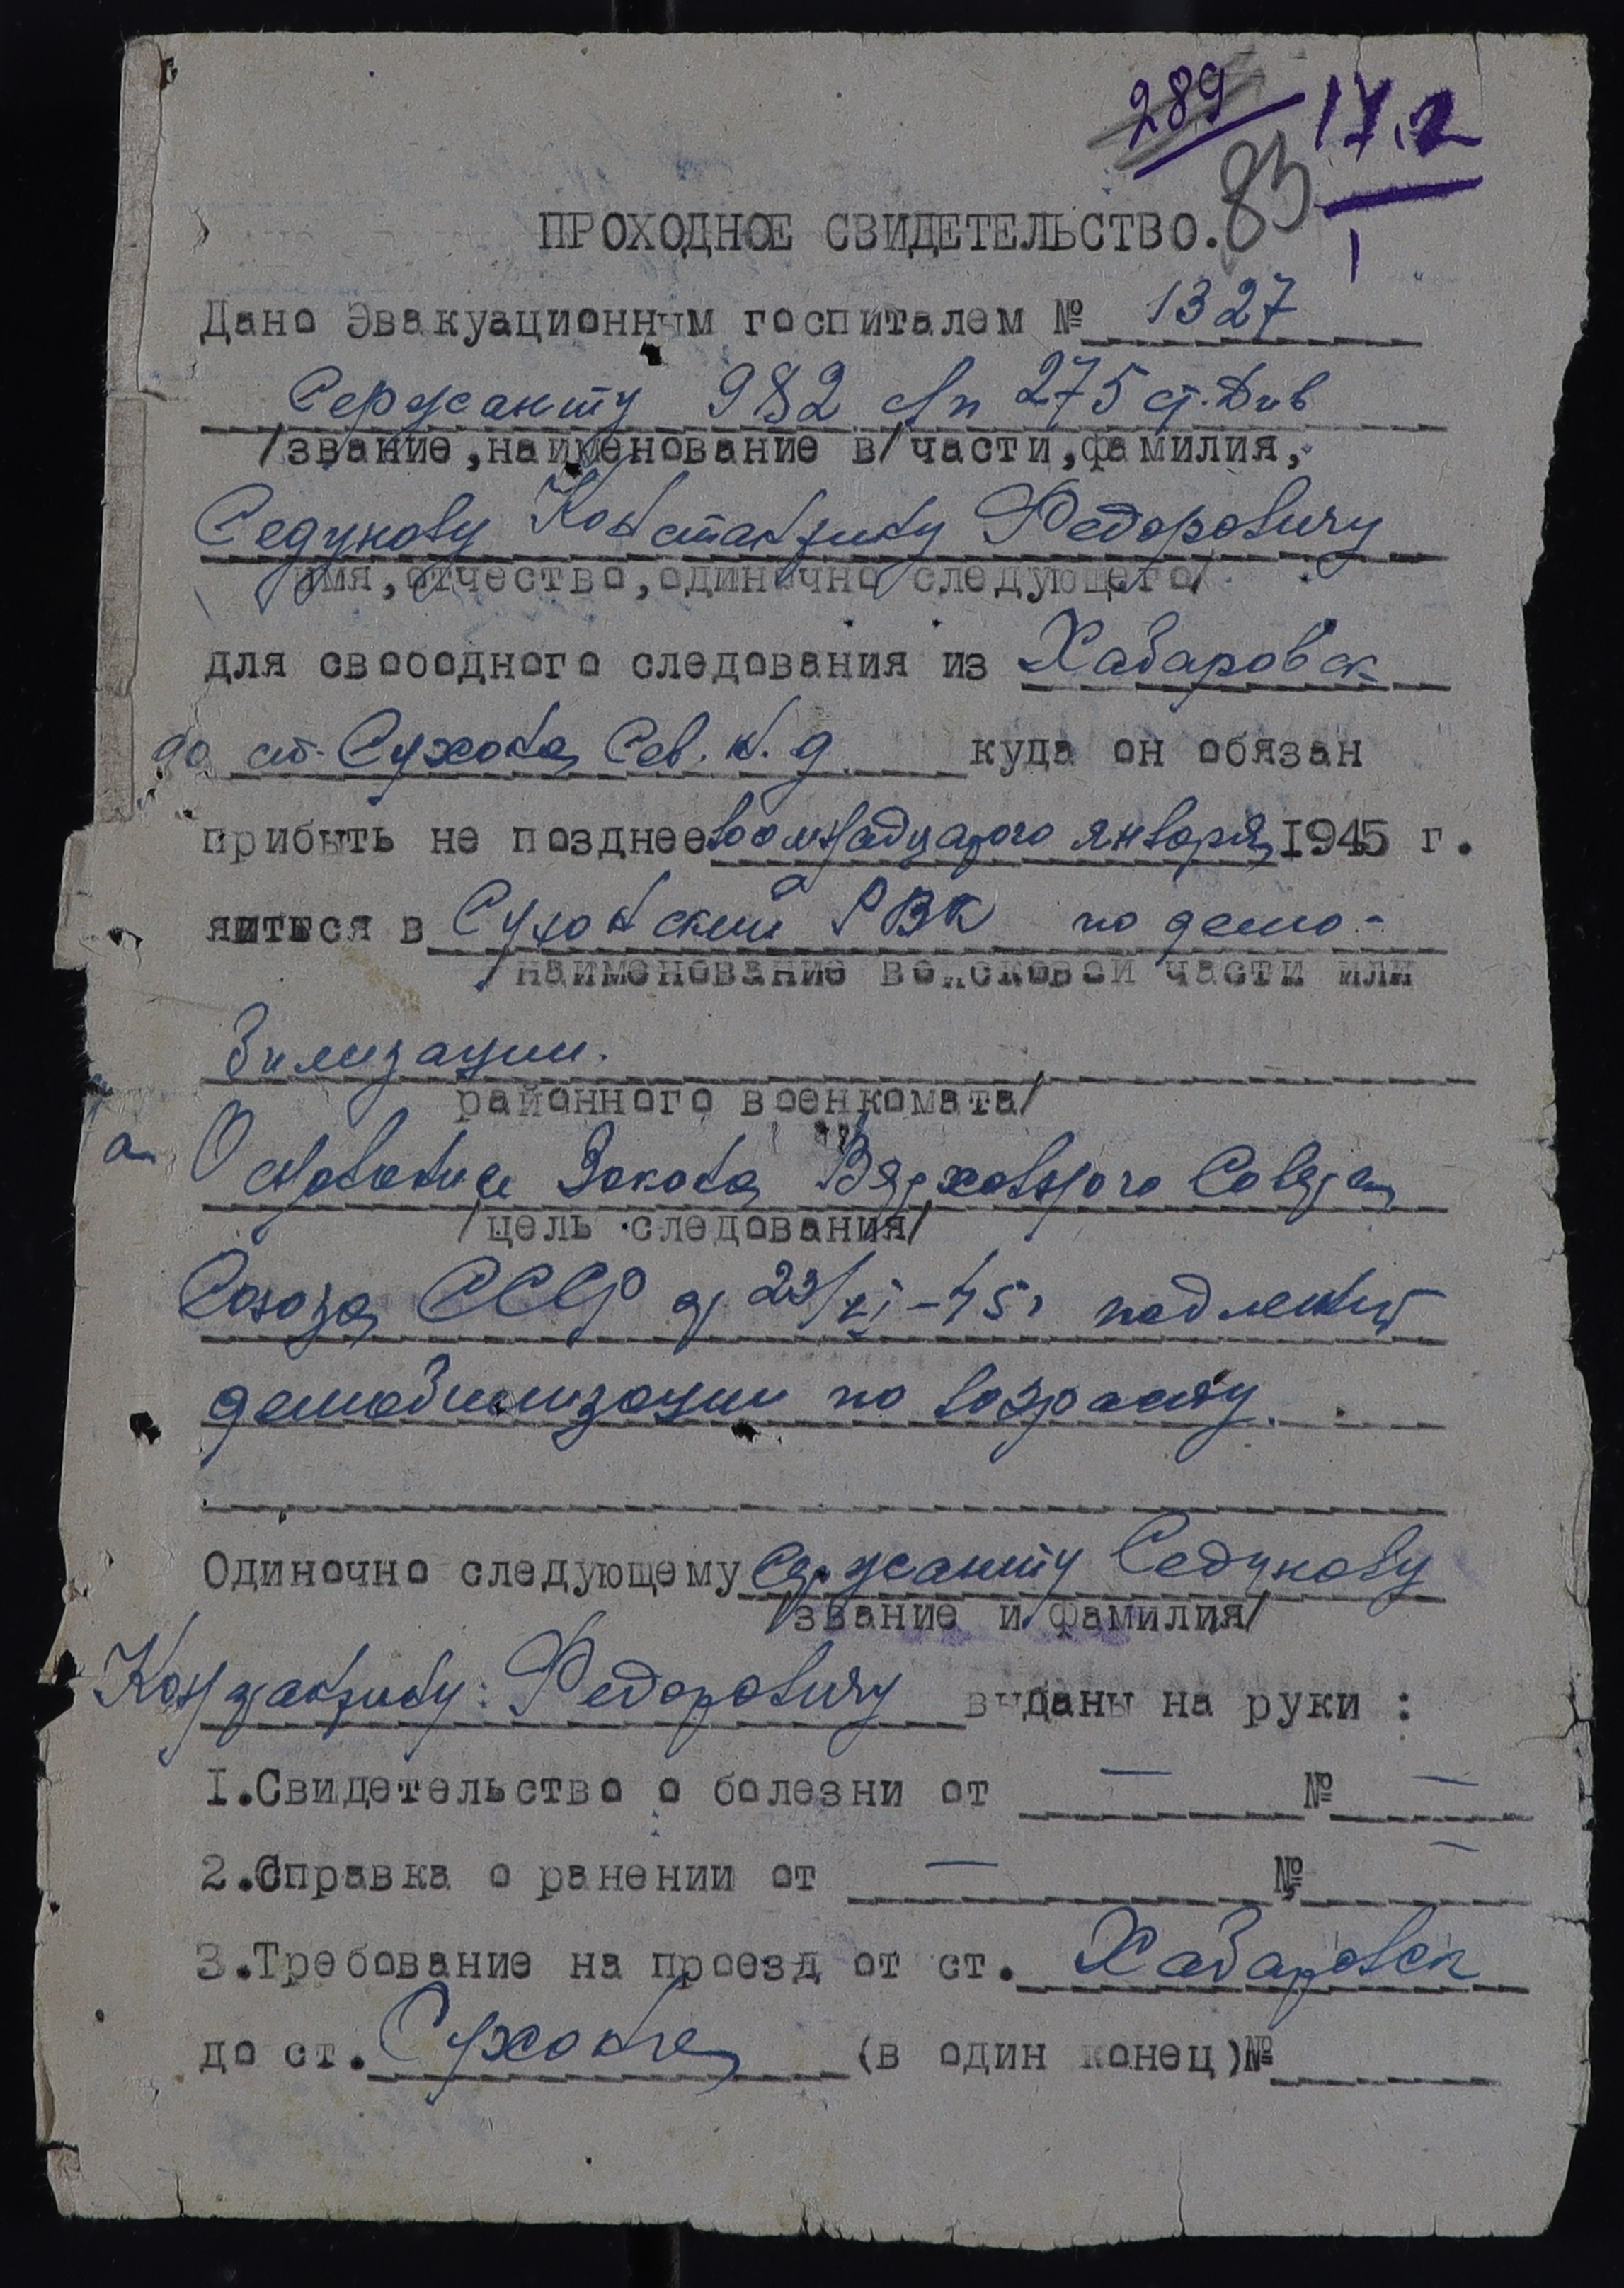 289 17.2
83
1
ПРОХОДНОЕ СВИДЕТЕЛЬСТВО.
Дано Эвакуационным госпиталем № 1327
Сержанту 982 сп 275 ст. Див
/звание, наименование в/части, фамилия,
Седунову Константину Федоровичу
имя, отчество, одиночно следующего/
для свободного следования из Хабаровск
до ст. Сухона Сев. ж. д. куда он обязан
прибыть не позднее восемнадцатого января 1945 г.
явиться в Сухонский РВК по демо-
/наименование войсковой части или
билизации.
районного военкомата/
на Основание Закона Верховного Совета
/цель следования/
Союза ССР от 23/VI-45г подлежит
демобилизации по возрасту.
Одиночно следующему сержанту Седунову
/звание и фамилия/
Константину Федоровичу выданы на руки :
1.Свидетельство о болезни от — № —
2.Справка о ранении от — № —
3.Требование на проезд от ст. Хабаровск
до ст. Сухона (в один конец)№